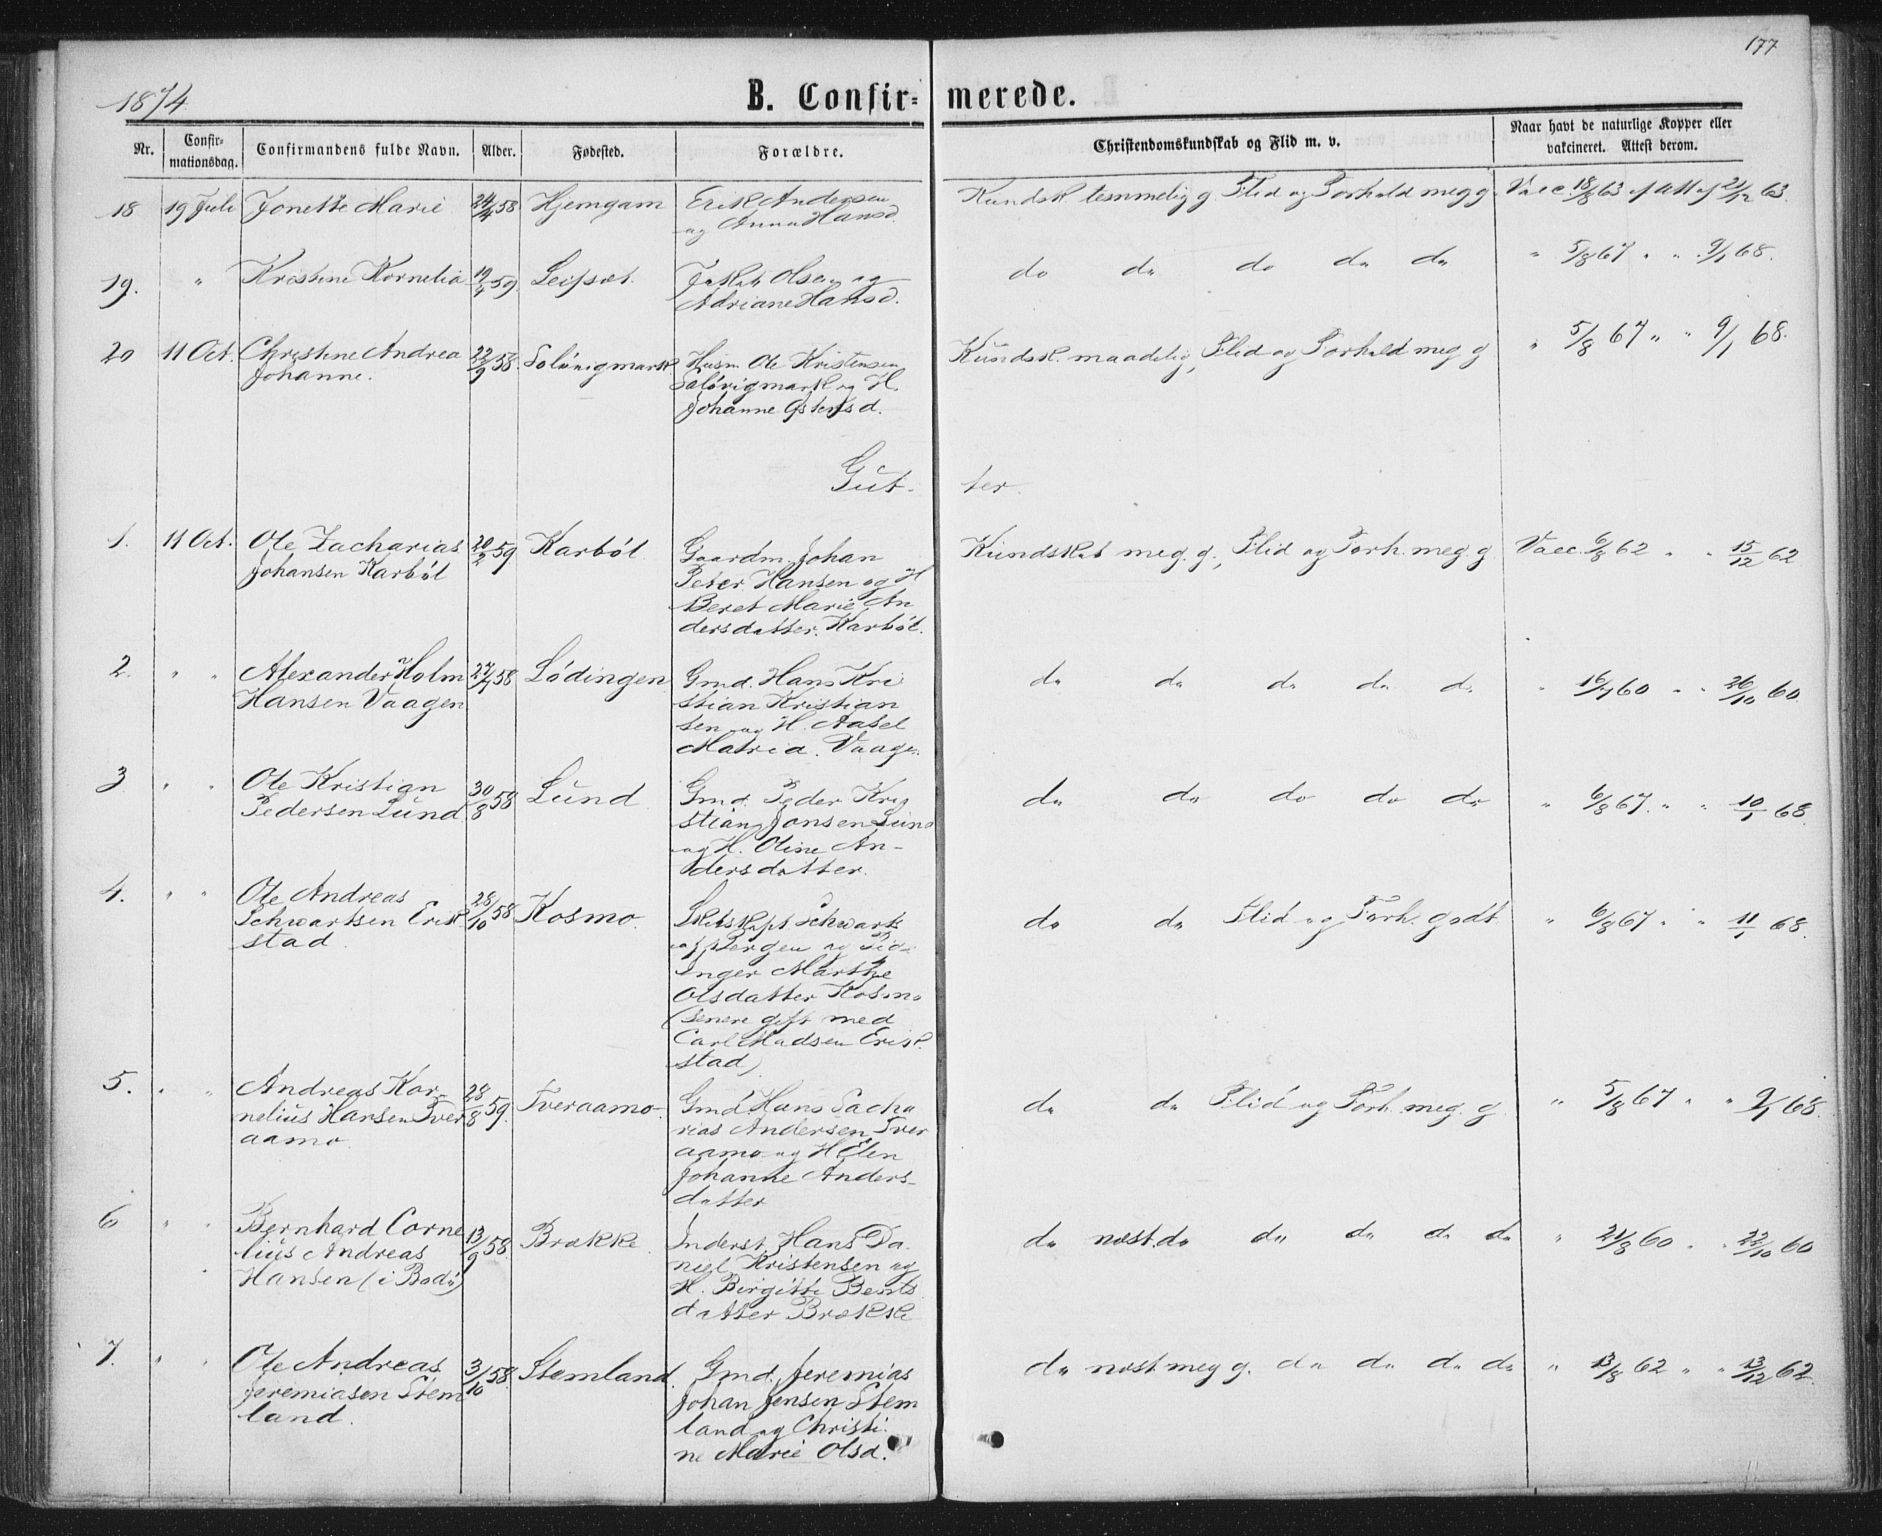 177
1874
B. Confir- merede.
Nr. Confir-mationsdag. Confirmandens fulde Navn. Alder. Fødested. Forældre. Christendomskundskab og Flid m. v. Naar havt de naturlige Kopper eller vakcineret. Attest derom.
18 19 Juli Jonette Marie 24/4 58 Hjemgam Erik Andersen Kundsk temmelig g Flid og Forhold meg g Vacc. 18/8 63 att 2/12 63.
og Anna Hansd.
19. " Kristine Kornelia 19/4 59 Leifset. Olsen og do do do do do " 5/8 67 " " 9/1 68.
Adriane Hansd.
20 11 Oct. Christine Andrea 22/9 58. Solövigmark Husm. Ole Kristensen Kundsk. maadelig, Flid og Forhold meg g " 5/8 67 " " 9/1 68.
Johanne. Solövigmark og H.
Johanne Ostensd.
Gut- ter.
1. 11 Oct. Ole Zacharias 20/2 59 Karböl Gaardm. Johan Kundskab meg. g., Flid og Forh. meg. g. Vacc. 6/8 62 " " 15/12 62
Johansen Karböl Peter Hansen og H
Beret Marie An
dersdatter. Karböl.
2. " " Alexander Holm 27/7 58 Lödingen Gmd. Hans Kri do do do do do " 16/7 60 " " 26/10 60.
Hansen Vaagen stian Kristian
sen og H. Aasel
Vaage.
3 " " Ole Kristian 30/8 58 Lund Gmd. Peder Kri do do do do do " 6/8 67. " " 10/1 68.
Pedersen Lund stian Jonsen Lund
og H. Oline An-
dersdatter.
4. " " Ole Andreas 28/10 58 Kosmo. Schwartz do do Flid og Forh. godt " 6/8 67 " " 11/1 68.
Schwartsen Erik af Bergen og Pige
stad. Inger Marthe
Olsdatter Kosmo
(senere gift med
Carl Madsen Erik
stad)
5. " " Andreas Kor 28/8 59. Tveraamo. Gmd Hans Sacha do do Flid og Forh. meg. g. " 5/8 67 " " 9/1 68.
nelius Hansen Tver rias Andersen Tver
aamo. aamo og H Elen
Johanne Anders-
datter
6 " " Bernhard Corne 13/9 58. Brække. Inderst. Hans Da do næst. do do do do do " 21/8 60 " " 22/10 60
lius Andreas niel Kristensen og
Hansen (i Bodö) H. Birgitte Bents
datter Brække
7. " " Ole Andreas 3/10 58. Stemland. Gmd. Jeremias do næst meg g. do do do do " 13/8 62 " " 13/12 62.
Jeremiasen Stem Johan Jensen Stem
land. land og Christi
ne Marie Olsd.